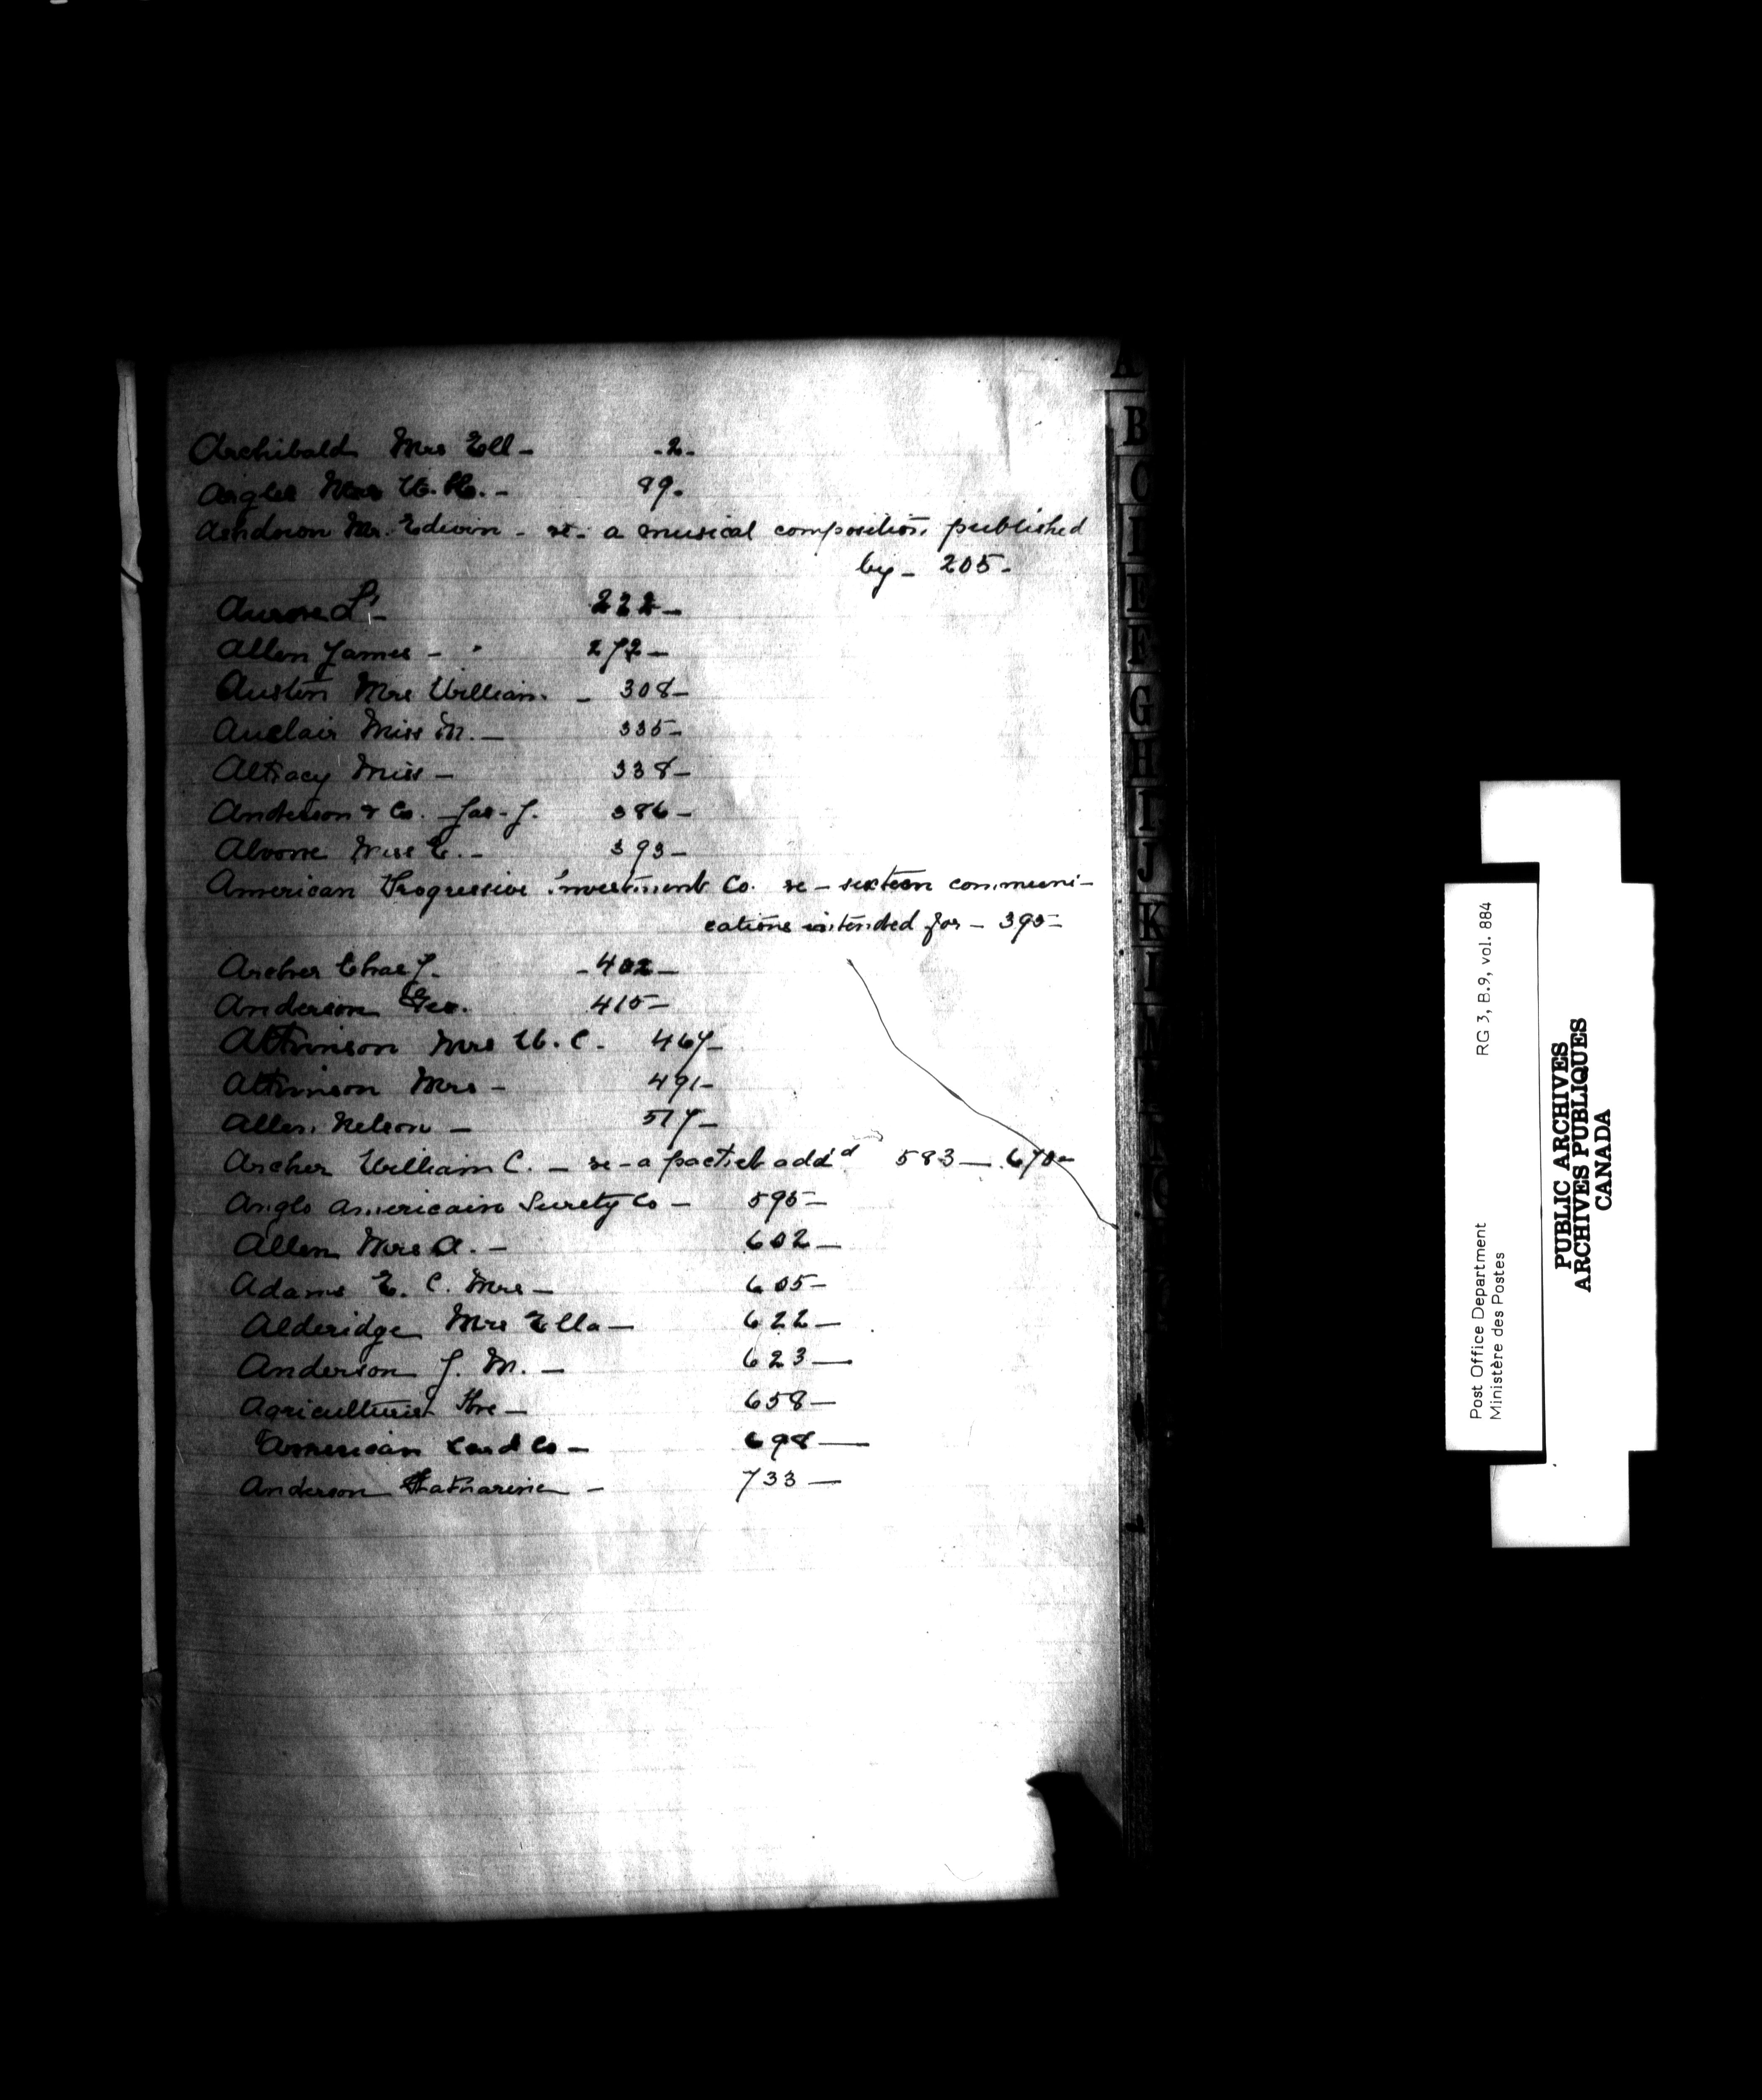 Archibald Mrs Ell - -2-
Aigles Mrs W. H. - 89.
Ashdown Mr. Edwin - re - a musical composition published
by - 205 -
Aurore L' - 222 -
Allen James - 272 -
Austin Mrs William - 308 -
Auclair Miss M. - 335 -
Altracy Miss - 338 -
Anderson & Co. Jas. J. 386 -
Aloone Miss E. - 393 -
American Progressive Investment Co. re - sixteen communi-
cations intended for - 395 -
Archer Chas J. - 402 -
Anderson Geo. 415 -
Attkinson Mrs W. C. 467 -
Attkinson Mrs - 491 -
Allen Nelson - 517 -
Archer William C. - re - a packet add'd 583 - 670 -
Anglo Americain Surety Co - 595 -
Allen Mrs A. - 602 -
Adams E. C. Mrs - 605 -
Alderidge Mrs Ella - 622 -
Anderson J. M. - 623 -
Agriculturist The - 658 -
American Card Co - 698 -
Anderson Katharine - 733 -
A
B
C
E
F
G
H
I
J
K
Post Office Department RG 3, B.9, vol. 884
Ministère des Postes
PUBLIC ARCHIVES
ARCHIVES PUBLIQUES
CANADA